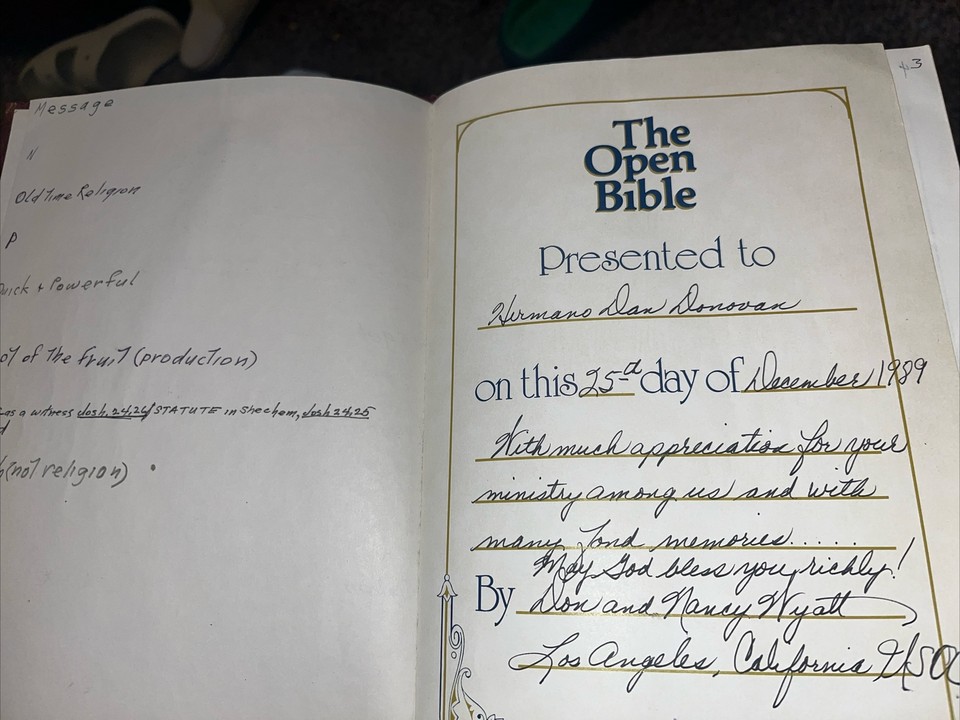 Message
N
Old Time Religion
P
Quick + Powerful
of the fruit (production)
as a witness Josh. 24,26/ STATUTE in Shechem, Josh 24,25
d
(not religion)
3
The
Open
Bible
Presented to
Hermano Dan Donovan
on this 25-d day of December, 1989
With much appreciation for your
ministry among us and with
many fond memories......
May God bless you richly!
By Don and Nancy Wyatt
Los Angeles, California